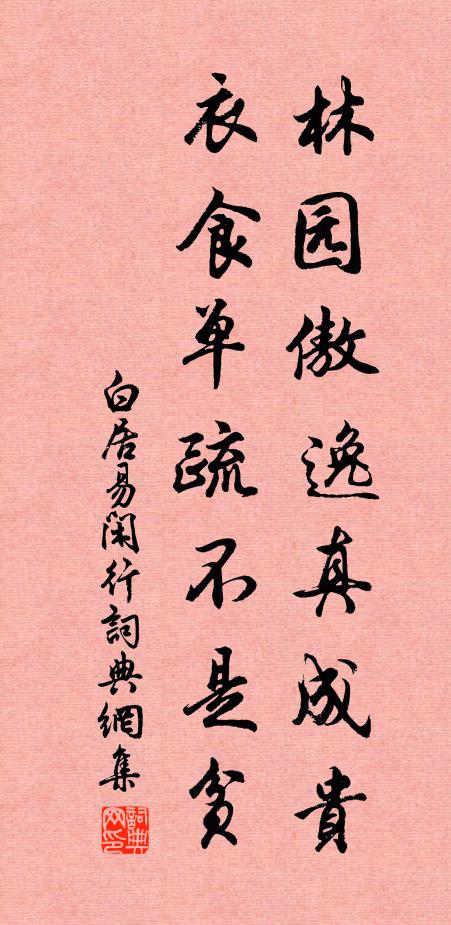 林园傲逸真成貴
衣食单疏不是贫
白居易闲行詞典網集
詞典网印